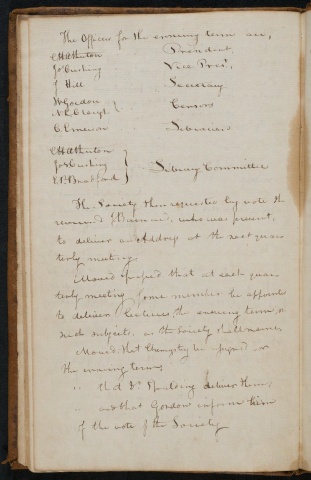 The Officers for the ensuing term are,
President,
Jos Cushing Vice Prest.
J Hill Secretary
W Gordon
Censors
C Emerson
Jos Cushing
Library Committee
The Society then requested by vote the
who was present,
to deliver an Address at the next quar
terly meeting.
Moved & passed that at each quar
terly meeting some member be appointed
to deliver lectures the ensuing term, on
such subjects, as the Society shall name
Moved, that Chemistry be assigned for
the ensuing term,
" that Dr Spaulding deliver them;
" and that Gordon inform him
of the vote of the Society